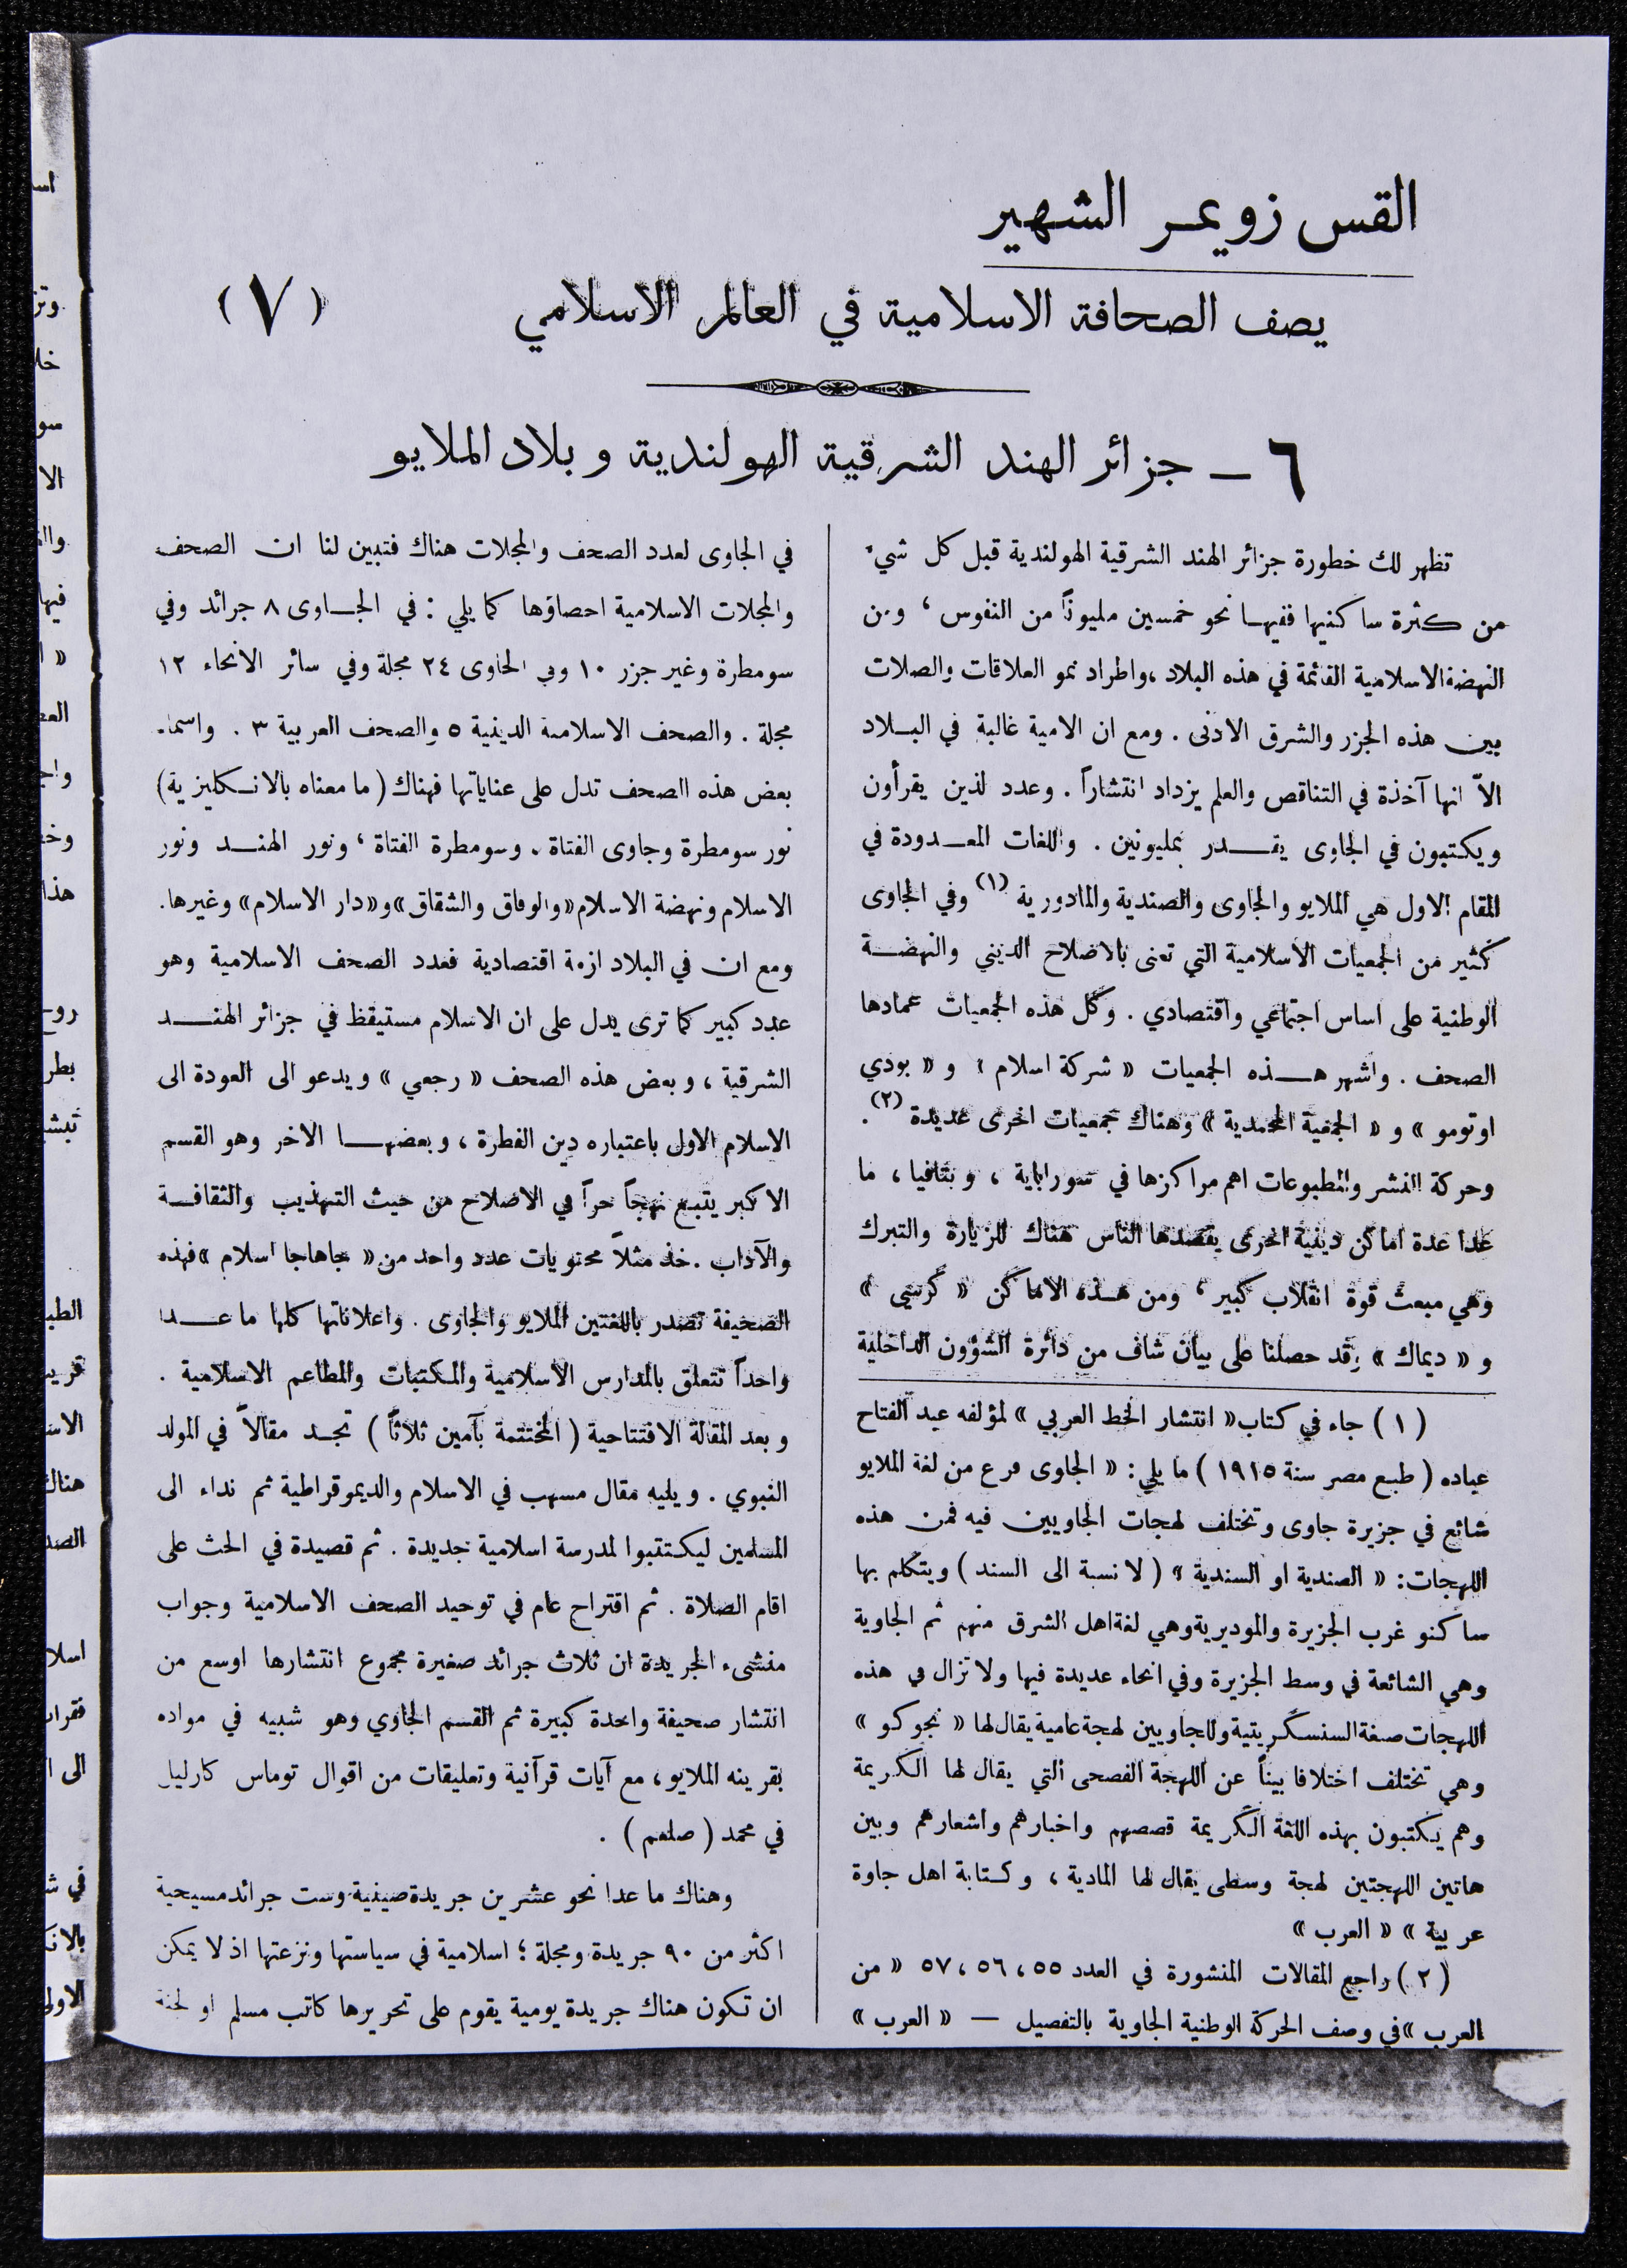 القس زويمر الشهير
يصف الصحافة الاسلامية في العالم الاسلامي (٧)
٦ – جزائر الهند الشرقية الهولندية وبلاد الملايو
تظهر لك خطورة جزائر الهند الشرقية الهولندية قبل كل شيء
من كثرة ساكنيها ففيها نحو خمسين مليوناً من النفوس ، ومن
النهضة الاسلامية القائمة في هذه البلاد ، واطراد نمو العلاقات والصلات
بين هذه الجزر والشرق الادنى . ومع ان الامية غالبة في البلاد
الاّ انها آخذة في التناقص والعلم يزداد انتشاراً . وعدد لذين يقرأون
ويكتبون في الجاوى يقدر بمليونين . واللغات المعدودة في
المقام الاول هي الملايو والجاوى والصندية والمادورية (١) وفي الجاوى
كثير من الجمعيات الاسلامية التي تعنى بالاصلاح الديني والنهضة
الوطنية على اساس اجتماعي واقتصادي . وكل هذه الجمعيات عمادها
الصحف . واشهر هذه الجمعيات « شركة اسلام » و « بودي
اوتومو » و « الجمعية المحمدية » وهناك جمعيات اخرى عديدة (٢) .
وحركة النشر والمطبوعات اهم مراكزها في سوراباية ، وبتافيا ، ما
عدا عدة اماكن دينية اخرى يقصدها الناس هناك للزيارة والتبرك
وهي مبعث قوة انقلاب كبير ، ومن هذه الاماكن « كرسي »
و « ديماك » وقد حصلنا على بيان شاف من دائرة الشؤون الداخلية
(١) جاء في كتاب « انتشار الخط العربي » لمؤلفه عبد الفتاح
عباده ( طبع مصر سنة ١٩١٥ ) ما يلي : « الجاوى فرع من لغة الملايو
شائع في جزيرة جاوى وتختلف لهجات الجاويين فيه فمن هذه
اللهجات : « الصندية او السندية » ( لا نسبة الى السند ) ويتكلم بها
ساكنو غرب الجزيرة والموديرية وهي لغة اهل الشرق منهم ثم الجاوية
وهي الشائعة في وسط الجزيرة وفي انحاء عديدة فيها ولا تزال في هذه
اللهجات صبغة السنسكريتية وللجاويين لهجة عامية يقال لها « نجوكو »
وهي تختلف اختلافا بيناً عن اللهجة الفصحى التي يقال لها الكريمة
وهم يكتبون بهذه اللغة الكريمة قصصهم واخبارهم واشعارهم وبين
هاتين اللهجتين لهجة وسطى يقال لها المادية ، وكتابة اهل جاوة
عربية » « العرب »
(٢) راجع المقالات المنشورة في العدد ٥٥ ، ٥٦ ، ٥٧ « من
العرب » في وصف الحركة الوطنية الجاوية بالتفصيل — « العرب »
في الجاوى لعدد الصحف والمجلات هناك فتبين لنا ان الصحف
والمجلات الاسلامية احصاؤها كما يلي : في الجاوى ٨ جرائد وفي
سومطرة وغير جزر ١٠ وفي الجاوى ٢٤ مجلة وفي سائر الانحاء ١٢
مجلة . والصحف الاسلامية الدينية ٥ والصحف العربية ٣ . واسماء
بعض هذه الصحف تدل على عناياتها فهناك ( ما معناه بالانكليزية )
نور سومطرة وجاوى الفتاة ، وسومطرة الفتاة ، ونور الهند ونور
الاسلام ونهضة الاسلام « والوفاق والشقاق » و « دار الاسلام » وغيرها .
ومع ان في البلاد ازمة اقتصادية فعدد الصحف الاسلامية وهو
عدد كبير كما ترى يدل على ان الاسلام مستيقظ في جزائر الهند
الشرقية ، وبعض هذه الصحف « رجعي » ويدعو الى العودة الى
الاسلام الاول باعتباره دين الفطرة ، وبعضها الاخر وهو القسم
الاكبر يتبع نهجاً حراً في الاصلاح من حيث التهذيب والثقافة
والآداب . خذ مثلاً محتويات عدد واحد من « جاهاجا اسلام » فهذه
الصحيفة تصدر باللغتين الملايو والجاوى . واعلاناتها كلها ما عدا
واحداً تتعلق بالمدارس الاسلامية والمكتبات والمطاعم الاسلامية .
وبعد المقالة الافتتاحية ( المختتمة بآمين ثلاثاً ) تجد مقالاً في المولد
النبوي . ويليه مقال مسهب في الاسلام والديموقراطية ثم نداء الى
المسلمين ليكتتبوا لمدرسة اسلامية جديدة . ثم قصيدة في الحث على
اقام الصلاة . ثم اقتراح عام في توحيد الصحف الاسلامية وجواب
منشىء الجريدة ان ثلاث جرائد صغيرة مجموع انتشارها اوسع من
انتشار صحيفة واحدة كبيرة ثم القسم الجاوي وهو شبيه في مواده
بقرينه الملايو ، مع آيات قرآنية وتعليقات من اقوال توماس كارليل
في محمد ( صلعم ) .
وهناك ما عدا نحو عشرين جريدة صينية وست جرائد مسيحية
اكثر من ٩٠ جريدة ومجلة ؛ اسلامية في سياستها ونزعتها اذ لا يمكن
ان تكون هناك جريدة يومية يقوم على تحريرها كاتب مسلم او لجنة